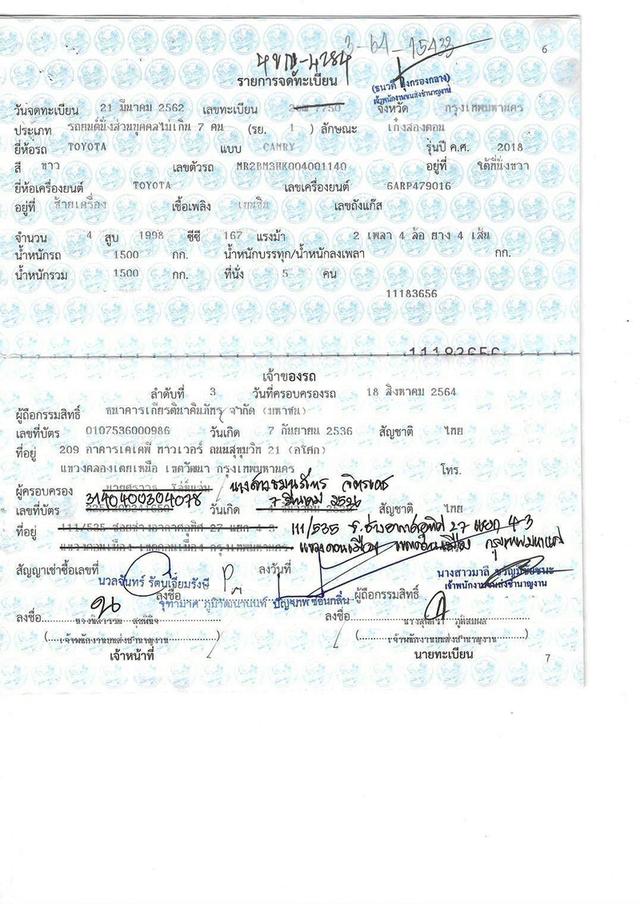 3-64-15423
4ขณ-4284
6
รายการจดทะเบียน
เจ้าพนักงานขนส่งชำนาญงาน
วันจดทะเบียน 21 มีนาคม 2562 เลขทะเบียน จังหวัด กรุงเทพมหานคร
ประเภท รถยนต์นั่งส่วนบุคคลไม่เกิน 7 คน (รย. 1 ) ลักษณะ เก๋งสองตอน
ยี่ห้อรถ TOYOTA แบบ CAMRY รุ่นปี ค.ศ. 2018
สี ขาว เลขตัวรถ MR2BM3HK004001140 อยู่ที่ ใต้ที่นั่งขวา
ยี่ห้อเครื่องยนต์ TOYOTA เลขเครื่องยนต์ 6ARP479016
อยู่ที่ ซ้ายเครื่อง เชื้อเพลิง เบนซิน เลขถังแก๊ส
จำนวน 4 สูบ 1998 ซีซี 167 แรงม้า 2 เพลา 4 ล้อ ยาง 4 เส้น
น้ำหนักรถ 1500 กก. น้ำหนักบรรทุก/น้ำหนักลงเพลา กก.
น้ำหนักรวม 1500 กก. ที่นั่ง 5 คน
11183656
11183656
เจ้าของรถ
ลำดับที่ 3 วันที่ครอบครองรถ 18 สิงหาคม 2564
ผู้ถือกรรมสิทธิ์ ธนาคารเกียรตินาคินภัทร จำกัด (มหาชน)
เลขที่บัตร 0107536000986 วันเกิด 7 กันยายน 2536 สัญชาติ ไทย
ที่อยู่ 209 อาคารเคเคพี ทาวเวอร์ ถนนสุขุมวิท 21 (อโศก)
แขวงคลองเตยเหนือ เขตวัฒนา กรุงเทพมหานคร โทร.
ผู้ครอบครอง
เลขที่บัตร 3140400304078 วันเกิด 7 มีนาคม 2526 สัญชาติ ไทย
ที่อยู่ 111/535 ซ.ช่างอากาศอุทิศ 27 แยก 4-3
แขวงดอนเมือง เขตดอนเมือง กรุงเทพมหานคร
สัญญาเช่าซื้อเลขที่ ลงวันที่
นวลจันทร์ รัตนเจี่ยมรังษี
นางสาวมาลี
เจ้าพนักงานขนส่งชำนาญงาน
ลงชื่อ ผู้ถือกรรมสิทธิ์
ลงชื่อ ลงชื่อ
(เจ้าพนักงานขนส่งชำนาญงาน) (เจ้าพนักงานขนส่งชำนาญงาน)
เจ้าหน้าที่ นายทะเบียน
7